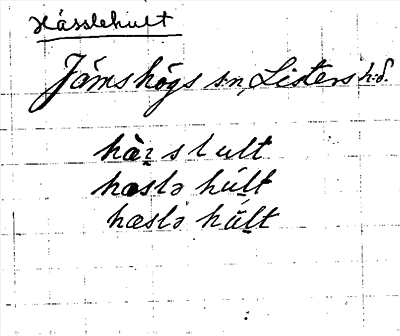 Hässlehult
Jämshögs sn, Listers hd.
hàz̠ slult
hæslə húl̠t
hæslə hul̠t